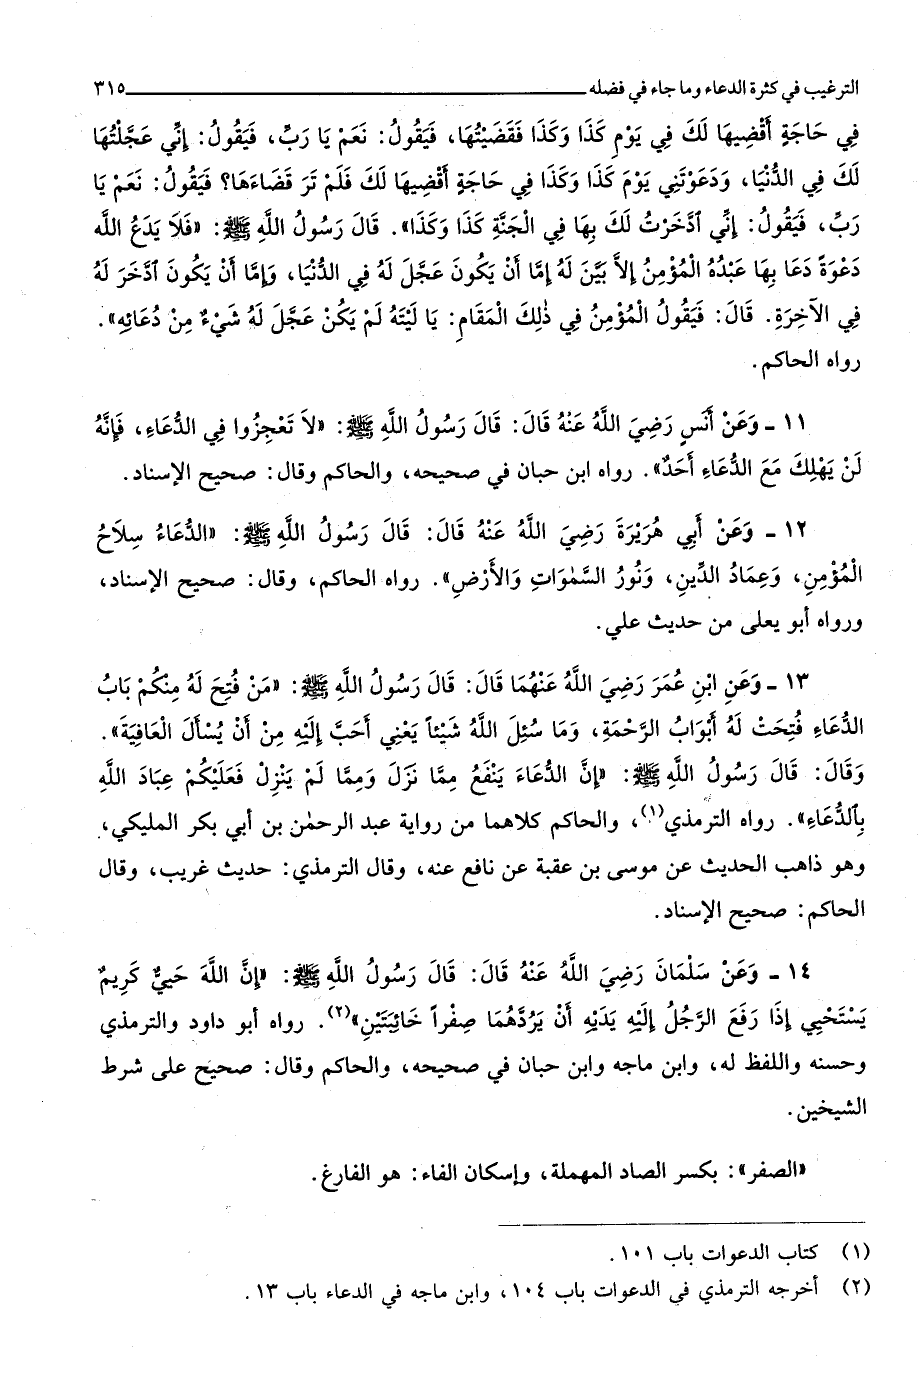 الترغيب في كثرة الدعاء وما جاء في فضله ٣١٥
فِي حَاجَةٍ أَقْضِيهَا لَكَ فِي يَوْمِ كَذَا وَكَذَا فَقَضَيْتُهَا، فَيَقُولُ: نَعَمْ يَا رَبِّ، فَيَقُولُ: إِنِّي عَجَّلْتُهَا
لَكَ فِي الدُّنْيَا، وَدَعَوْتَنِي يَوْمَ كَذَا وَكَذَا فِي حَاجَةٍ أَقْضِيهَا لَكَ فَلَمْ تَرَ قَضَاءَهَا؟ فَيَقُولُ: نَعَمْ يَا
رَبِّ، فَيَقُولُ: إِنِّي ٱدَّخَرْتُ لَكَ بِهَا فِي الْجَنَّةِ كَذَا وَكَذَا». قَالَ رَسُولُ اللَّهِ ﷺ: «فَلَا يَدَعُ اللَّه
دَعْوَةً دَعَا بِهَا عَبْدُهُ الْمُؤْمِنُ إِلاَّ بَيَّنَ لَهُ إِمَّا أَنْ يَكُونَ عَجَّلَ لَهُ فِي الدُّنْيَا، وَإِمَّا أَنْ يَكُونَ ٱدَّخَرَ لَهُ
فِي الآخِرَةِ. قَالَ: فَيَقُولُ الْمُؤْمِنُ فِي ذٰلِكَ الْمَقَامِ: يَا لَيْتَهُ لَمْ يَكُنْ عَجَّلَ لَهُ شَيْءٌ مِنْ دُعَائِهِ».
رواه الحاكم.
١١ ـ وَعَنْ أَنَسٍ رَضِيَ اللَّهُ عَنْهُ قَالَ: قَالَ رَسُولُ اللَّهِ ﷺ: «لاَ تَعْجِزُوا فِي الدُّعَاءِ، فَإِنَّهُ
لَنْ يَهْلِكَ مَعَ الدُّعَاءِ أَحَدٌ». رواه ابن حبان في صحيحه، والحاكم وقال: صحيح الإسناد.
١٢ ـ وَعَنْ أَبِي هُرَيْرَةَ رَضِيَ اللَّهُ عَنْهُ قَالَ: قَالَ رَسُولُ اللَّهِ ﷺ: «الدُّعَاءُ سِلَاحُ
الْمُؤْمِنِ، وَعِمَادُ الدِّينِ، وَنُورُ السَّمٰوَاتِ وَالأَرْضِ». رواه الحاكم، وقال: صحيح الإسناد،
ورواه أبو يعلى من حديث علي.
١٣ ـ وَعَنِ ابْنِ عُمَرَ رَضِيَ اللَّهُ عَنْهُمَا قَالَ: قَالَ رَسُولُ اللَّهِ ﷺ: «مَنْ فُتِحَ لَهُ مِنْكُمْ بَابُ
الدُّعَاءِ فُتِحَتْ لَهُ أَبْوَابُ الرَّحْمَةِ، وَمَا سُئِلَ اللَّهُ شَيْئاً يَعْنِي أَحَبَّ إِلَيْهِ مِنْ أَنْ يُسْأَلَ الْعَافِيَةَ».
وَقَالَ: قَالَ رَسُولُ اللَّهِ ﷺ: «إِنَّ الدُّعَاءَ يَنْفَعُ مِمَّا نَزَلَ وَمِمَّا لَمْ يَنْزِلْ فَعَلَيْكُمْ عِبَادَ اللَّهِ
بِٱلدُّعَاءِ». رواه الترمذي(١)، والحاكم كلاهما من رواية عبد الرحمٰن بن أبي بكر المليكي،
وهو ذاهب الحديث عن موسى بن عقبة عن نافع عنه، وقال الترمذي: حديث غريب، وقال
الحاكم: صحيح الإسناد.
١٤ ـ وَعَنْ سَلْمَانَ رَضِيَ اللَّهُ عَنْهُ قَالَ: قَالَ رَسُولُ اللَّهِ ﷺ: «إِنَّ اللَّهَ حَيِيٌّ كَرِيمٌ
يَسْتَحْيِي إِذَا رَفَعَ الرَّجُلُ إِلَيْهِ يَدَيْهِ أَنْ يَرُدَّهُمَا صِفْراً خَائِبَتَيْنِ»(٢). رواه أبو داود والترمذي
وحسنه واللفظ له، وابن ماجه وابن حبان في صحيحه، والحاكم وقال: صحيح على شرط
الشيخين.
«الصفر»: بكسر الصاد المهملة، وإسكان الفاء: هو الفارغ.
(١) كتاب الدعوات باب ١٠١.
(٢) أخرجه الترمذي في الدعوات باب ١٠٤، وابن ماجه في الدعاء باب ١٣.